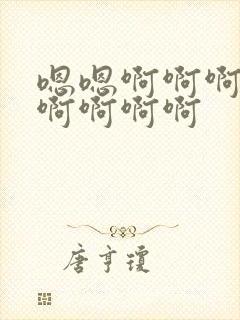 嗯嗯啊啊啊
啊啊啊啊
唐亨琼